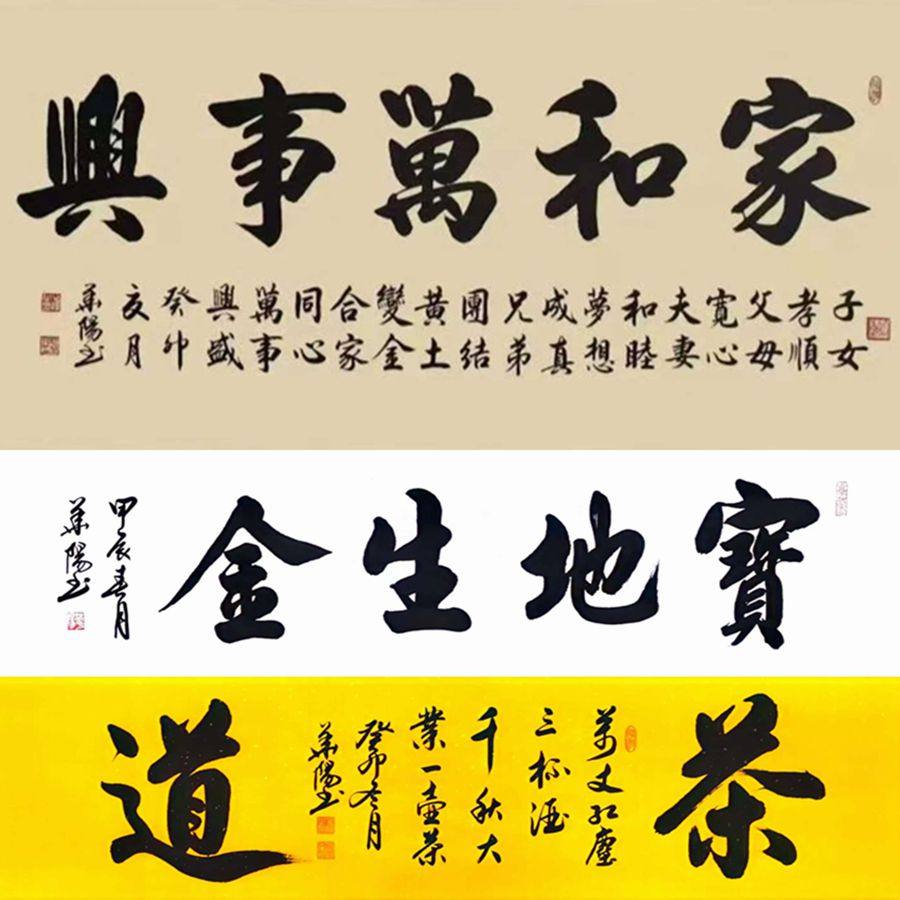 家和萬事興
子女
孝順
父母
寬心
夫妻
和睦
夢想
成真
兄弟
團結
黃土
變金
合家
同心
萬事
興盛
癸卯
亥月
華陽书
寶地生金
甲辰春月
華陽书
茶
萬丈红塵
三杯酒
千秋大
業一壺茶
癸卯冬月
華陽书
道